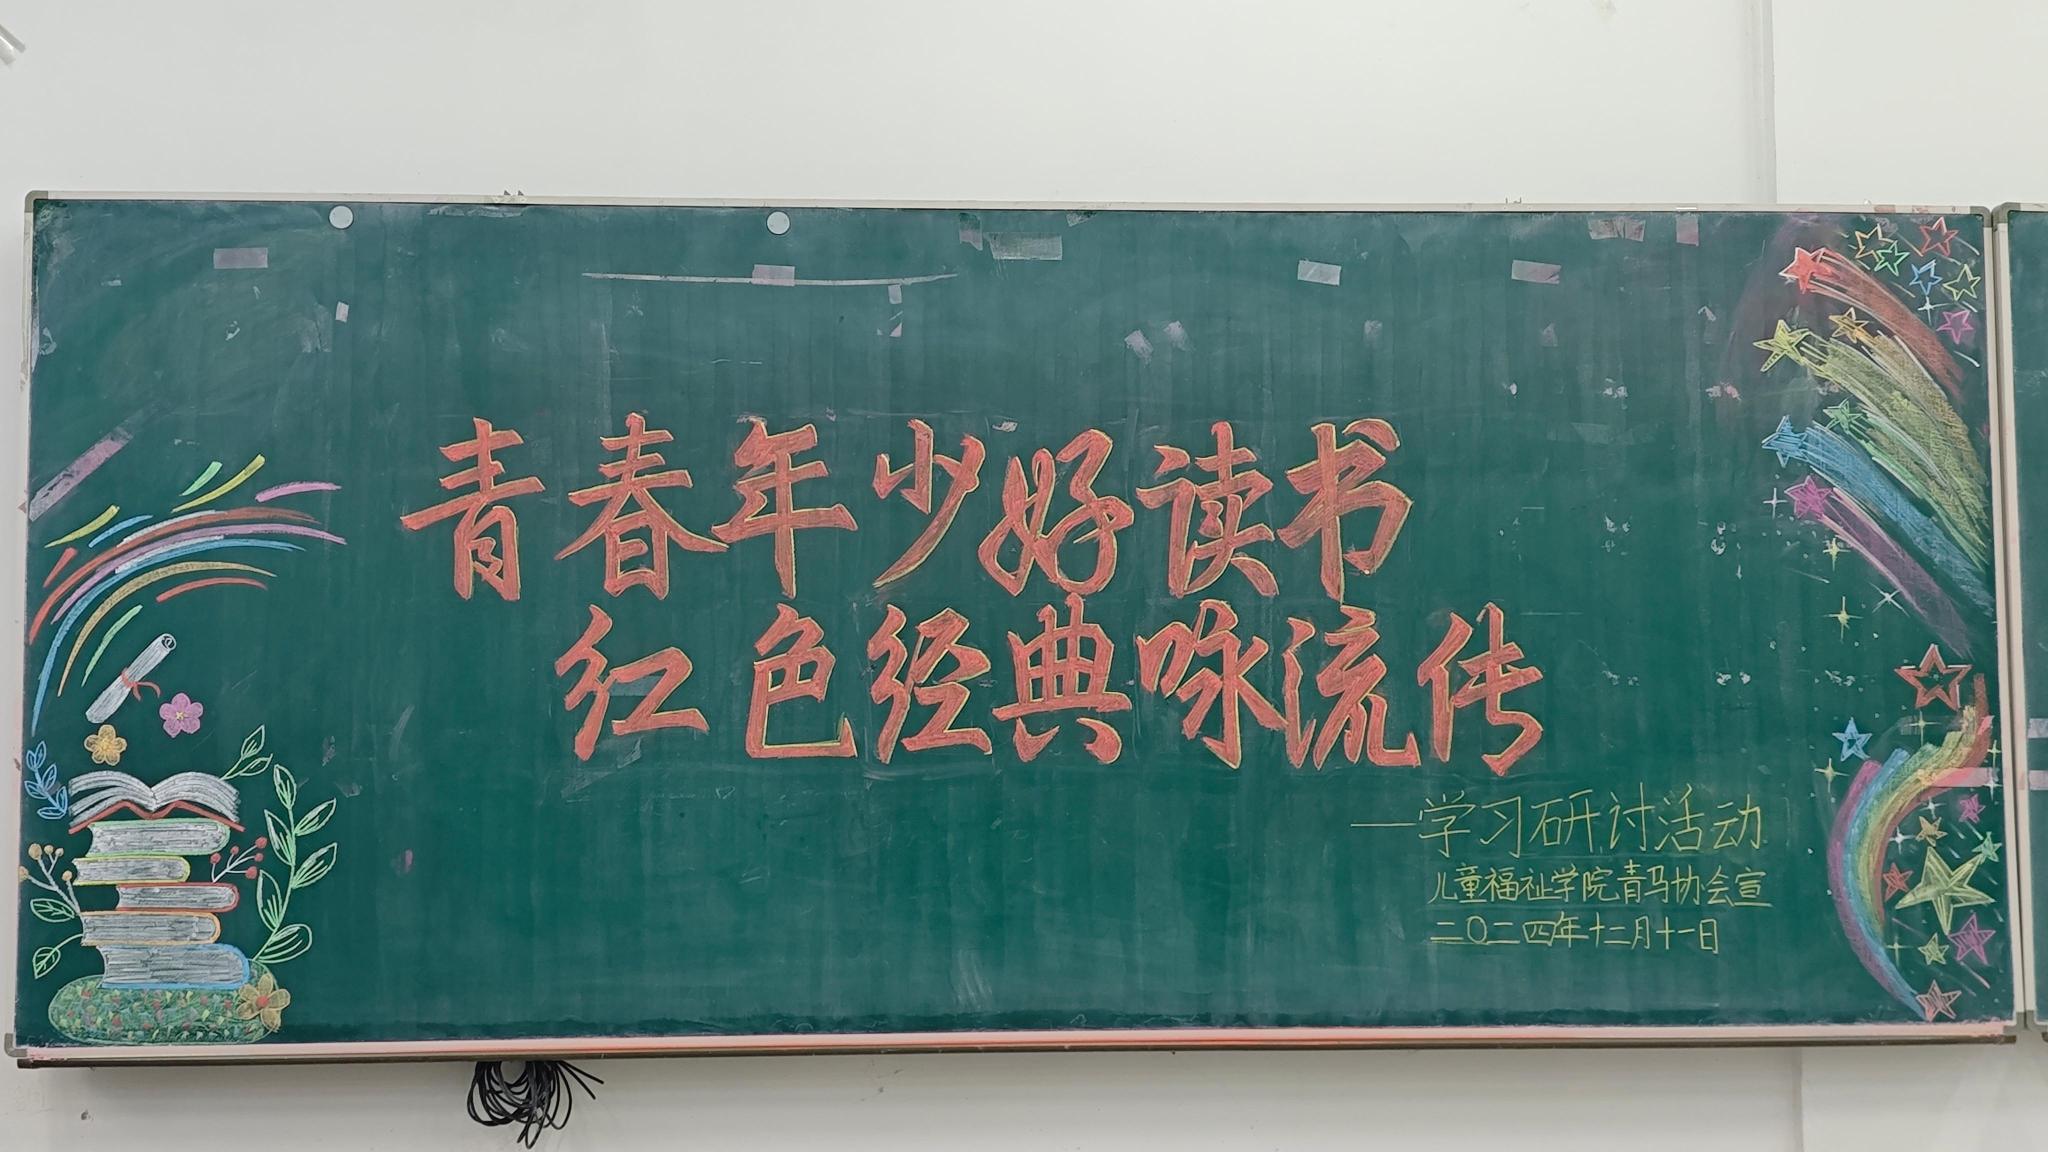 青春年少好读书
红色经典咏流传
—学习研讨活动
儿童福祉学院青马协会宣
二〇二四年十二月十一日